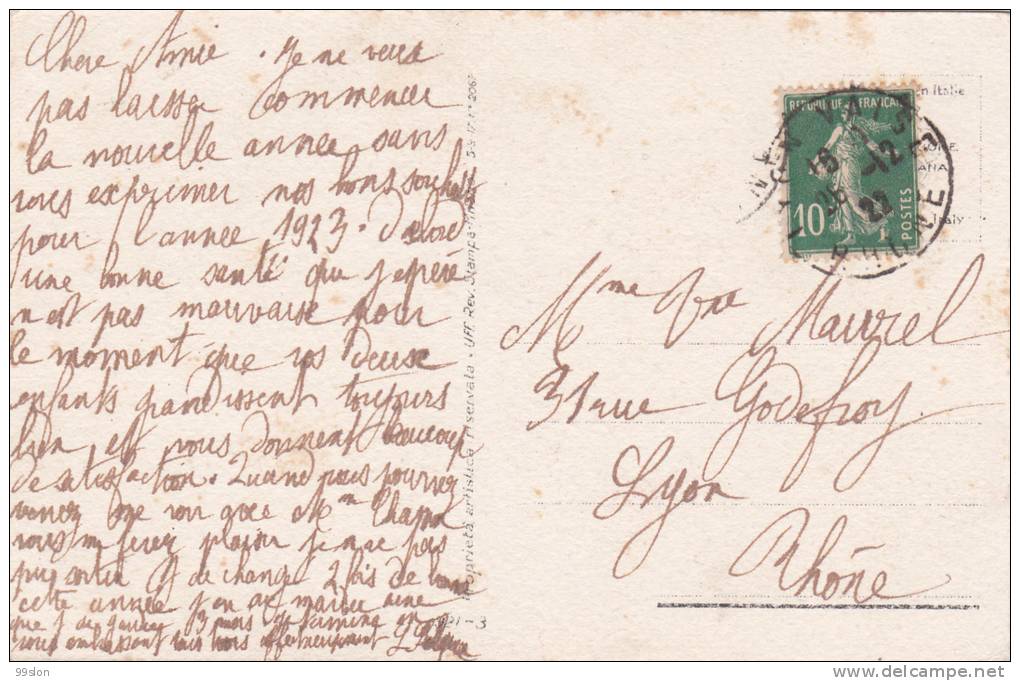 Chere Amie . Je ne veux
pas laisser commencer
la nouvelle année sans
vous exprimer nos bons souhaits
pour l'année 1923. d'abord
une bonne santé que j'espère
n'est pas mauvaise pour
le moment que vos deux
enfants grandissent toujours
bien, et vous donnent beaucoup
de satisfaction. Quand vous pourrez
venez me voir avec Mme
vous me ferez plaisir je n'ai pas
pu sortir de change 2 fois de bonne
cette année j'en ai
que j'ai 3 mois
vous embrassent tous bien affectueusement
Proprietà artistica riservata - Uff. Rev. Stampa
- 3
REPUBLIQUE FRANÇAISE
10 c
POSTES
LYON VAISE
RHONE
18
-12
22
n Italie
Mme Vve Maurel
31 rue Godefroy
Lyon
Rhône
99slon
http://www.delcampe.net